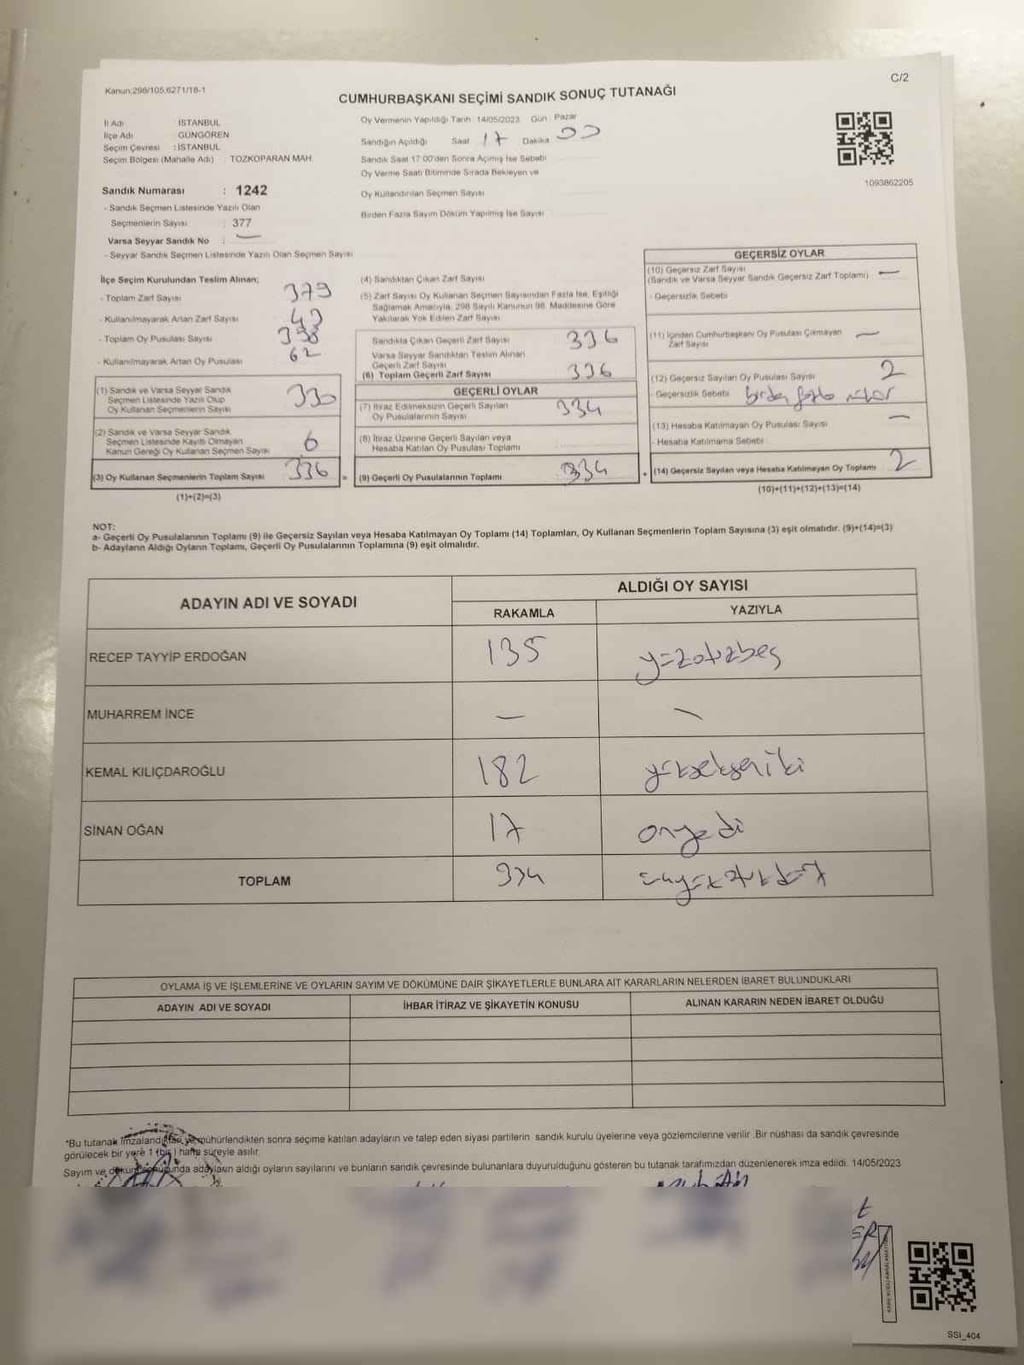 Kanun:298/105,6271/18-1
C/2
CUMHURBAŞKANI SEÇİMİ SANDIK SONUÇ TUTANAĞI
İl Adı : İSTANBUL
İlçe Adı : GÜNGÖREN
Seçim Çevresi : İSTANBUL
Seçim Bölgesi (Mahalle Adı) : TOZKOPARAN MAH.
Sandık Numarası : 1242
- Sandık Seçmen Listesinde Yazılı Olan
Seçmenlerin Sayısı : 377
Varsa Seyyar Sandık No : —
- Seyyar Sandık Seçmen Listesinde Yazılı Olan Seçmen Sayısı
Oy Vermenin Yapıldığı Tarih 14/05/2023 Gün Pazar
Sandığın Açıldığı Saat 17 Dakika 00
Sandık Saat 17:00'den Sonra Açılmış İse Sebebi
Oy Verme Saati Bitiminde Sırada Bekleyen ve
Oy Kullandırılan Seçmen Sayısı
Birden Fazla Sayım Döküm Yapılmış İse Sayısı
1093862205
İlçe Seçim Kurulundan Teslim Alınan;
- Toplam Zarf Sayısı 379
- Kullanılmayarak Artan Zarf Sayısı 43
- Toplam Oy Pusulası Sayısı 398
- Kullanılmayarak Artan Oy Pusulası 62
(1) Sandık ve Varsa Seyyar Sandık
Seçmen Listesinde Yazılı Olup
Oy Kullanan Seçmenlerin Sayısı 330
(2) Sandık ve Varsa Seyyar Sandık
Seçmen Listesinde Kayıtlı Olmayan
Kanun Gereği Oy Kullanan Seçmen Sayısı 6
(3) Oy Kullanan Seçmenlerin Toplam Sayısı 336
(1)+(2)=(3)
(4) Sandıktan Çıkan Zarf Sayısı
(5) Zarf Sayısı Oy Kullanan Seçmen Sayısından Fazla İse, Eşitliği
Sağlamak Amacıyla, 298 Sayılı Kanunun 98. Maddesine Göre
Yakılarak Yok Edilen Zarf Sayısı
Sandıkta Çıkan Geçerli Zarf Sayısı 336
Varsa Seyyar Sandıktan Teslim Alınan
Geçerli Zarf Sayısı
(6) Toplam Geçerli Zarf Sayısı 336
GEÇERLİ OYLAR
(7) İtiraz Edilmeksizin Geçerli Sayılan
Oy Pusulalarının Sayısı 334
(8) İtiraz Üzerine Geçerli Sayılan veya
Hesaba Katılan Oy Pusulası Toplamı
= (9) Geçerli Oy Pusulalarının Toplamı 334
GEÇERSİZ OYLAR
(10) Geçersiz Zarf Sayısı —
(Sandık ve Varsa Seyyar Sandık Geçersiz Zarf Toplamı)
- Geçersizlik Sebebi
(11) İçinden Cumhurbaşkanı Oy Pusulası Çıkmayan
Zarf Sayısı —
(12) Geçersiz Sayılan Oy Pusulası Sayısı 2
- Geçersizlik Sebebi birden fazla mühür
(13) Hesaba Katılmayan Oy Pusulası Sayısı —
- Hesaba Katılmama Sebebi
+ (14) Geçersiz Sayılan veya Hesaba Katılmayan Oy Toplamı 2
(10)+(11)+(12)+(13)=(14)
NOT:
a- Geçerli Oy Pusulalarının Toplamı (9) ile Geçersiz Sayılan veya Hesaba Katılmayan Oy Toplamı (14) Toplamları, Oy Kullanan Seçmenlerin Toplam Sayısına (3) eşit olmalıdır. (9)+(14)=(3)
b- Adayların Aldığı Oyların Toplamı, Geçerli Oy Pusulalarının Toplamına (9) eşit olmalıdır.
ADAYIN ADI VE SOYADI
ALDIĞI OY SAYISI
RAKAMLA YAZIYLA
RECEP TAYYİP ERDOĞAN 135 yüzotuzbeş
MUHARREM İNCE — —
KEMAL KILIÇDAROĞLU 182 yüksekseniki
SİNAN OĞAN 17 onyedi
TOPLAM 334
OYLAMA İŞ VE İŞLEMLERİNE VE OYLARIN SAYIM VE DÖKÜMÜNE DAİR ŞİKAYETLERLE BUNLARA AİT KARARLARIN NELERDEN İBARET BULUNDUKLARI
ADAYIN ADI VE SOYADI İHBAR İTİRAZ VE ŞİKAYETİN KONUSU ALINAN KARARIN NEDEN İBARET OLDUĞU
*Bu tutanak imzalandıktan ve mühürlendikten sonra seçime katılan adayların ve talep eden siyasi partilerin sandık kurulu üyelerine veya gözlemcilerine verilir. Bir nüshası da sandık çevresinde
görülecek bir yere 1 (bir) hafta süreyle asılır.
Sayım ve dökümün sonunda adayların aldığı oyların sayılarını ve bunların sandık çevresinde bulunanlara duyurulduğunu gösteren bu tutanak tarafımızdan düzenlenerek imza edildi. 14/05/2023
SSI_404